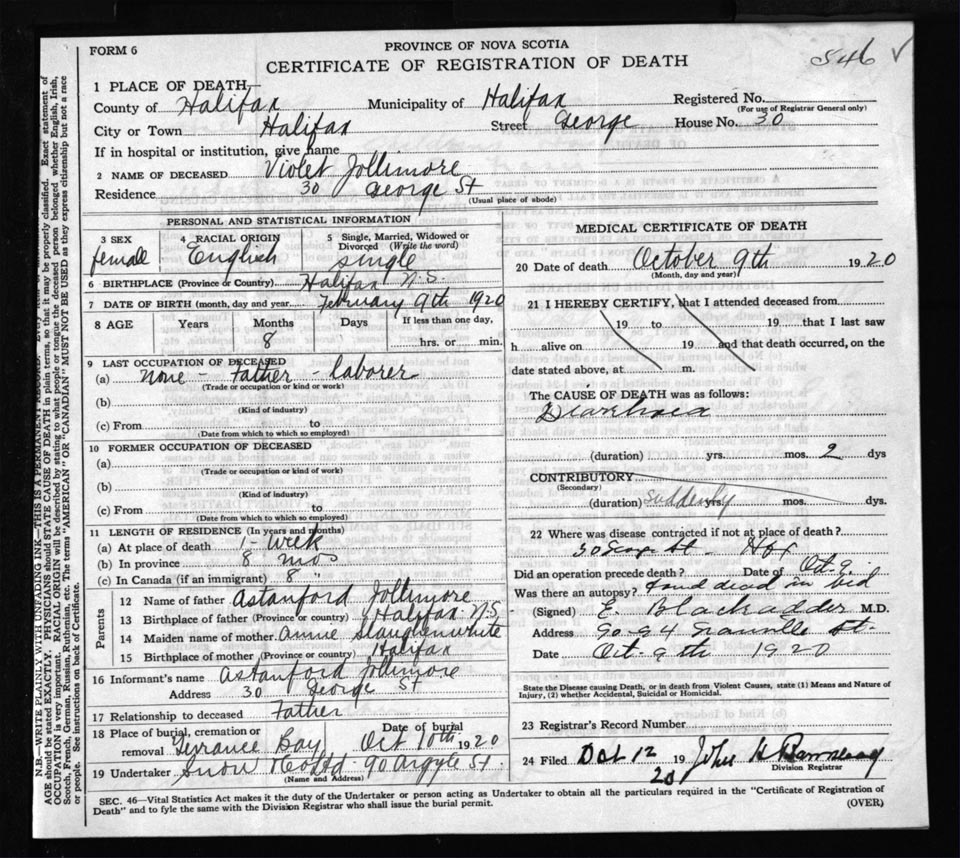 FORM 6
PROVINCE OF NOVA SCOTIA
CERTIFICATE OF REGISTRATION OF DEATH
546 ✓
1 PLACE OF DEATH
County of Halifax Municipality of Halifax Registered No.
(For use of Registrar General only)
City or Town Halifax Street George House No. 30
If in hospital or institution, give name
2 NAME OF DECEASED Violet Jollimore
Residence 30 George St
(Usual place of abode)
PERSONAL AND STATISTICAL INFORMATION
3 SEX female
4 RACIAL ORIGIN English
5 Single, Married, Widowed or Divorced (Write the word) single
6 BIRTHPLACE (Province or Country) Halifax N.S.
7 DATE OF BIRTH (month, day and year) February 9th 1920
8 AGE Years Months Days If less than one day,
8 hrs. or min.
9 LAST OCCUPATION OF DECEASED
(a) none - Father - laborer
(Trade or occupation or kind of work)
(b)
(Kind of industry)
(c) From to
(Date from which to which so employed)
10 FORMER OCCUPATION OF DECEASED
(a)
(Trade or occupation or kind of work)
(b)
(Kind of industry)
(c) From to
(Date from which to which so employed)
11 LENGTH OF RESIDENCE (In years and months)
(a) At place of death 1 - week
(b) In province 8 mos
(c) In Canada (if an immigrant) 8 "
Parents
12 Name of father Astanford Jollimore
13 Birthplace of father (Province or country) Halifax N.S
14 Maiden name of mother Annie Slaughenwhite
15 Birthplace of mother (Province or country) Halifax
16 Informant's name Astanford Jollimore
Address 30 George St
17 Relationship to deceased Father
18 Place of burial, cremation or Date of burial
removal Terrance Bay Oct 10th 1920
19 Undertaker Snow & Co Ltd - 90 Argyle St.
(Name and Address)
MEDICAL CERTIFICATE OF DEATH
20 Date of death October 9th 1920
(Month, day and year)
21 I HEREBY CERTIFY, that I attended deceased from
19 to 19 that I last saw
h alive on 19 and that death occurred, on the
date stated above, at m.
The CAUSE OF DEATH was as follows:
Diarrhoea
(duration) yrs. mos. 2 dys
CONTRIBUTORY
(Secondary)
(duration) suddenly yrs. mos. dys.
22 Where was disease contracted if not at place of death?
30 George St - Hfx
Did an operation precede death? Date of Oct 9
Was there an autopsy? Found dead in bed
(Signed) E. Blackadder M.D.
Address 90-94 Granville St.
Date Oct. 9th 1920
State the Disease causing Death, or in death from Violent Causes, state (1) Means and Nature of
Injury, (2) whether Accidental, Suicidal or Homicidal.
23 Registrar's Record Number
24 Filed Oct 12 19 20 John H
Division Registrar
SEC. 46—Vital Statistics Act makes it the duty of the Undertaker or person acting as Undertaker to obtain all the particulars required in the "Certificate of Registration of
Death" and to fyle the same with the Division Registrar who shall issue the burial permit. (OVER)
N.B.—WRITE PLAINLY WITH UNFADING INK—THIS IS A PERMANENT RECORD.
AGE should be stated EXACTLY. PHYSICIANS should STATE CAUSE OF DEATH in plain terms, so that it may be properly classified. Exact statement of
OCCUPATION is very important. RACIAL ORIGIN will be described by stating to what people or tongue the deceased person belonged whether English, Irish,
Scotch, French, German, Russian, Ruthenian, etc. The terms "AMERICAN" or "CANADIAN" MUST NOT BE USED as they express citizenship but not a race
or people. See instructions on back of Certificate.